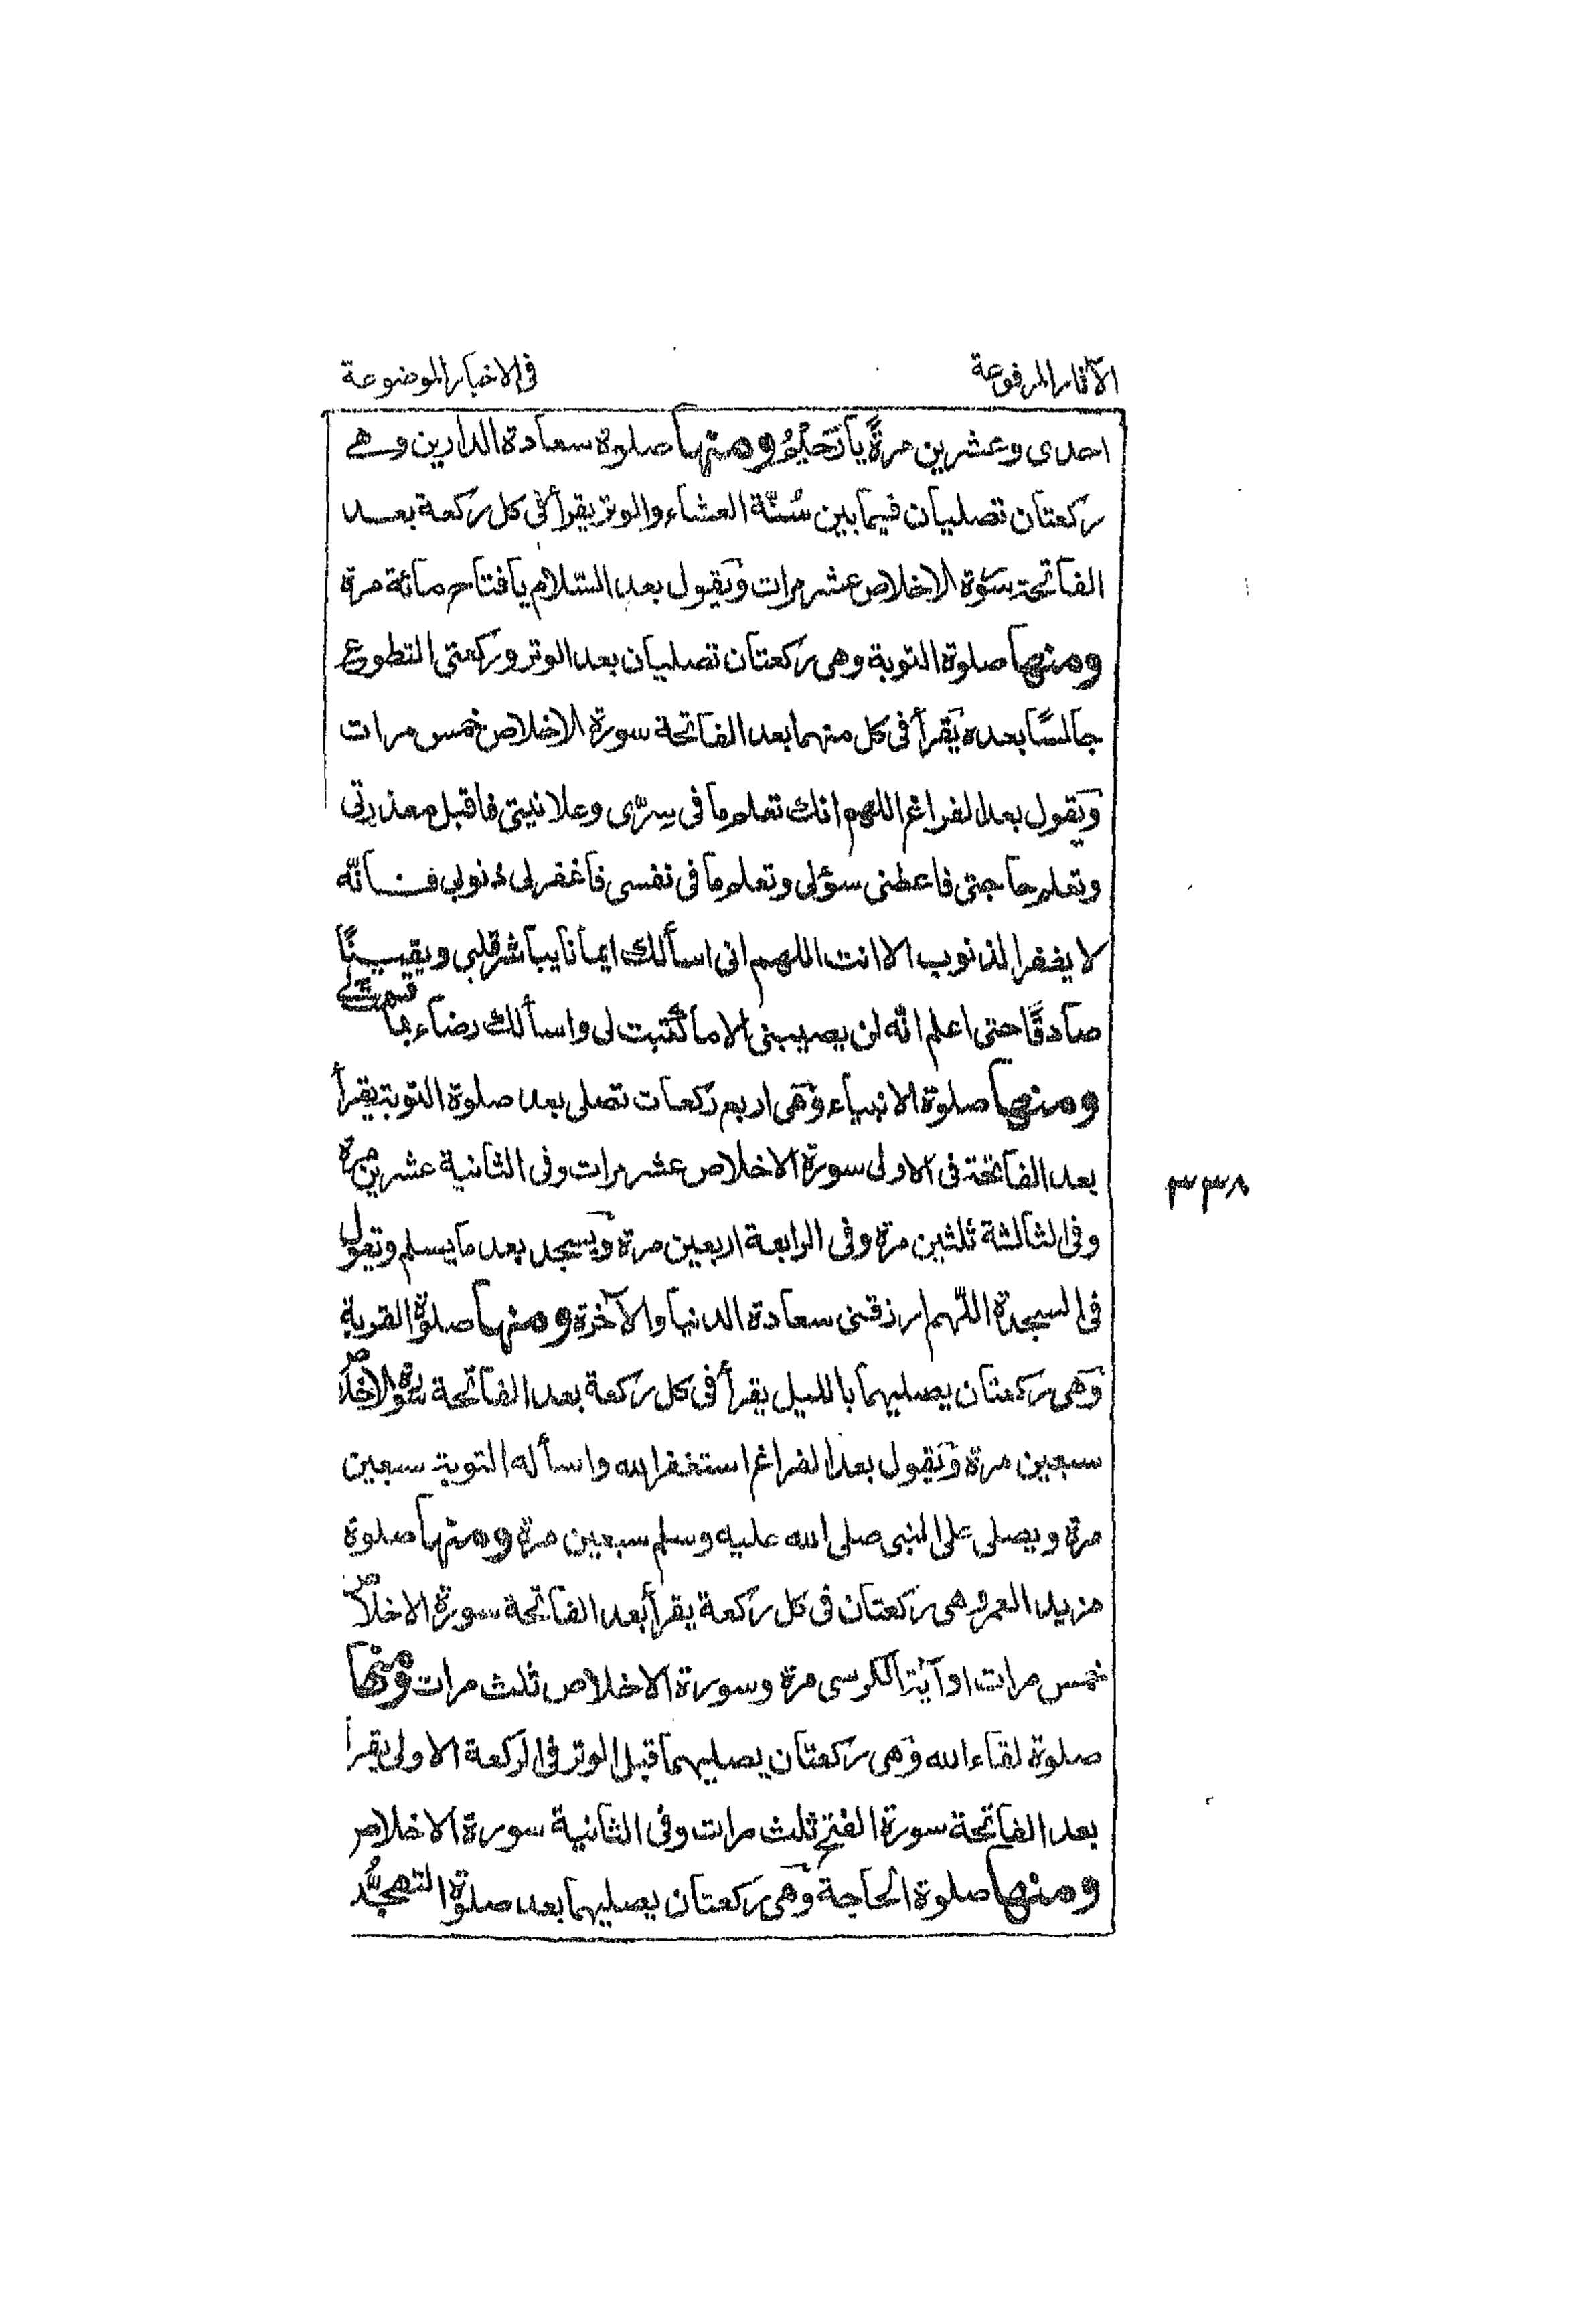 الآثار المرفوعة
فى الاخبار الموضوعة
احدى وعشرين مرةً يا رحيمُ ومنها صلوة سعادة الدارين وهى
ركعتان تصليان فيما بين سُنّة العشاء والوتر يقرأ فى كل ركعة بعد
الفاتحة سورة الاخلاص عشر مرات وَيقول بعد السّلام يا فتاح مائة مرة
ومنها صلوة التوبة وهى ركعتان تصليان بعد الوتر وركعتى التطوع
جالسًا بعده يَقرأ فى كل منهما بعد الفاتحة سورة الاخلاص خمس مرات
وَيقول بعد الفراغ اللهم انك تعلم ما فى سِرّى وعلانيتى فاقبل معذرتى
وتعلم حاجتى فاعطنى سؤلى وتعلم ما فى نفسى فاغفر لى ذنوبى فانّه
لا يغفر الذنوب الا انت اللهم انى اسألك ايمانا يباشر قلبى ويقينًا
صادقًا حتى اعلم انّه لن يصيبنى الا ما كتبت لى واسألك رضاء بما قسمت لى
ومنها صلوة الانبياء وَهى اربع ركعات تصلى بعد صلوة التوبة يقرأ
بعد الفاتحة فى الاولى سورة الاخلاص عشر مرات وفى الثانية عشرين مرة
وفى الثالثة ثلثين مرة وفى الرابعة اربعين مرة وَيسجد بعد ما يسلم وتقول
فى السجدة اللّهم ارزقنى سعادة الدنيا والآخرة ومنها صلوة القربة
وَهى ركعتان يصليهما بالليل يقرأ فى كل ركعة بعد الفاتحة سورة الاخلاص
سبعين مرة وَيقول بعد الفراغ استغفر الله واسأله التوبة سبعين
مرة ويصلى على النبى صلى الله عليه وسلم سبعين مرة ومنها صلوة
مزيد العمر وهى ركعتان فى كل ركعة يقرأ بعد الفاتحة سورة الاخلاص
خمس مرات او آية الكرسى مرة وسورة الاخلاص ثلث مرات ومنها
صلوة لقاء الله وَهى ركعتان يصليهما قبل الوتر فى الركعة الاولى يقرأ
بعد الفاتحة سورة الفتح ثلث مرات وفى الثانية سورة الاخلاص
ومنها صلوة الحاجة وَهى ركعتان يصليهما بعد صلوة التهجُّد
٣٣٨